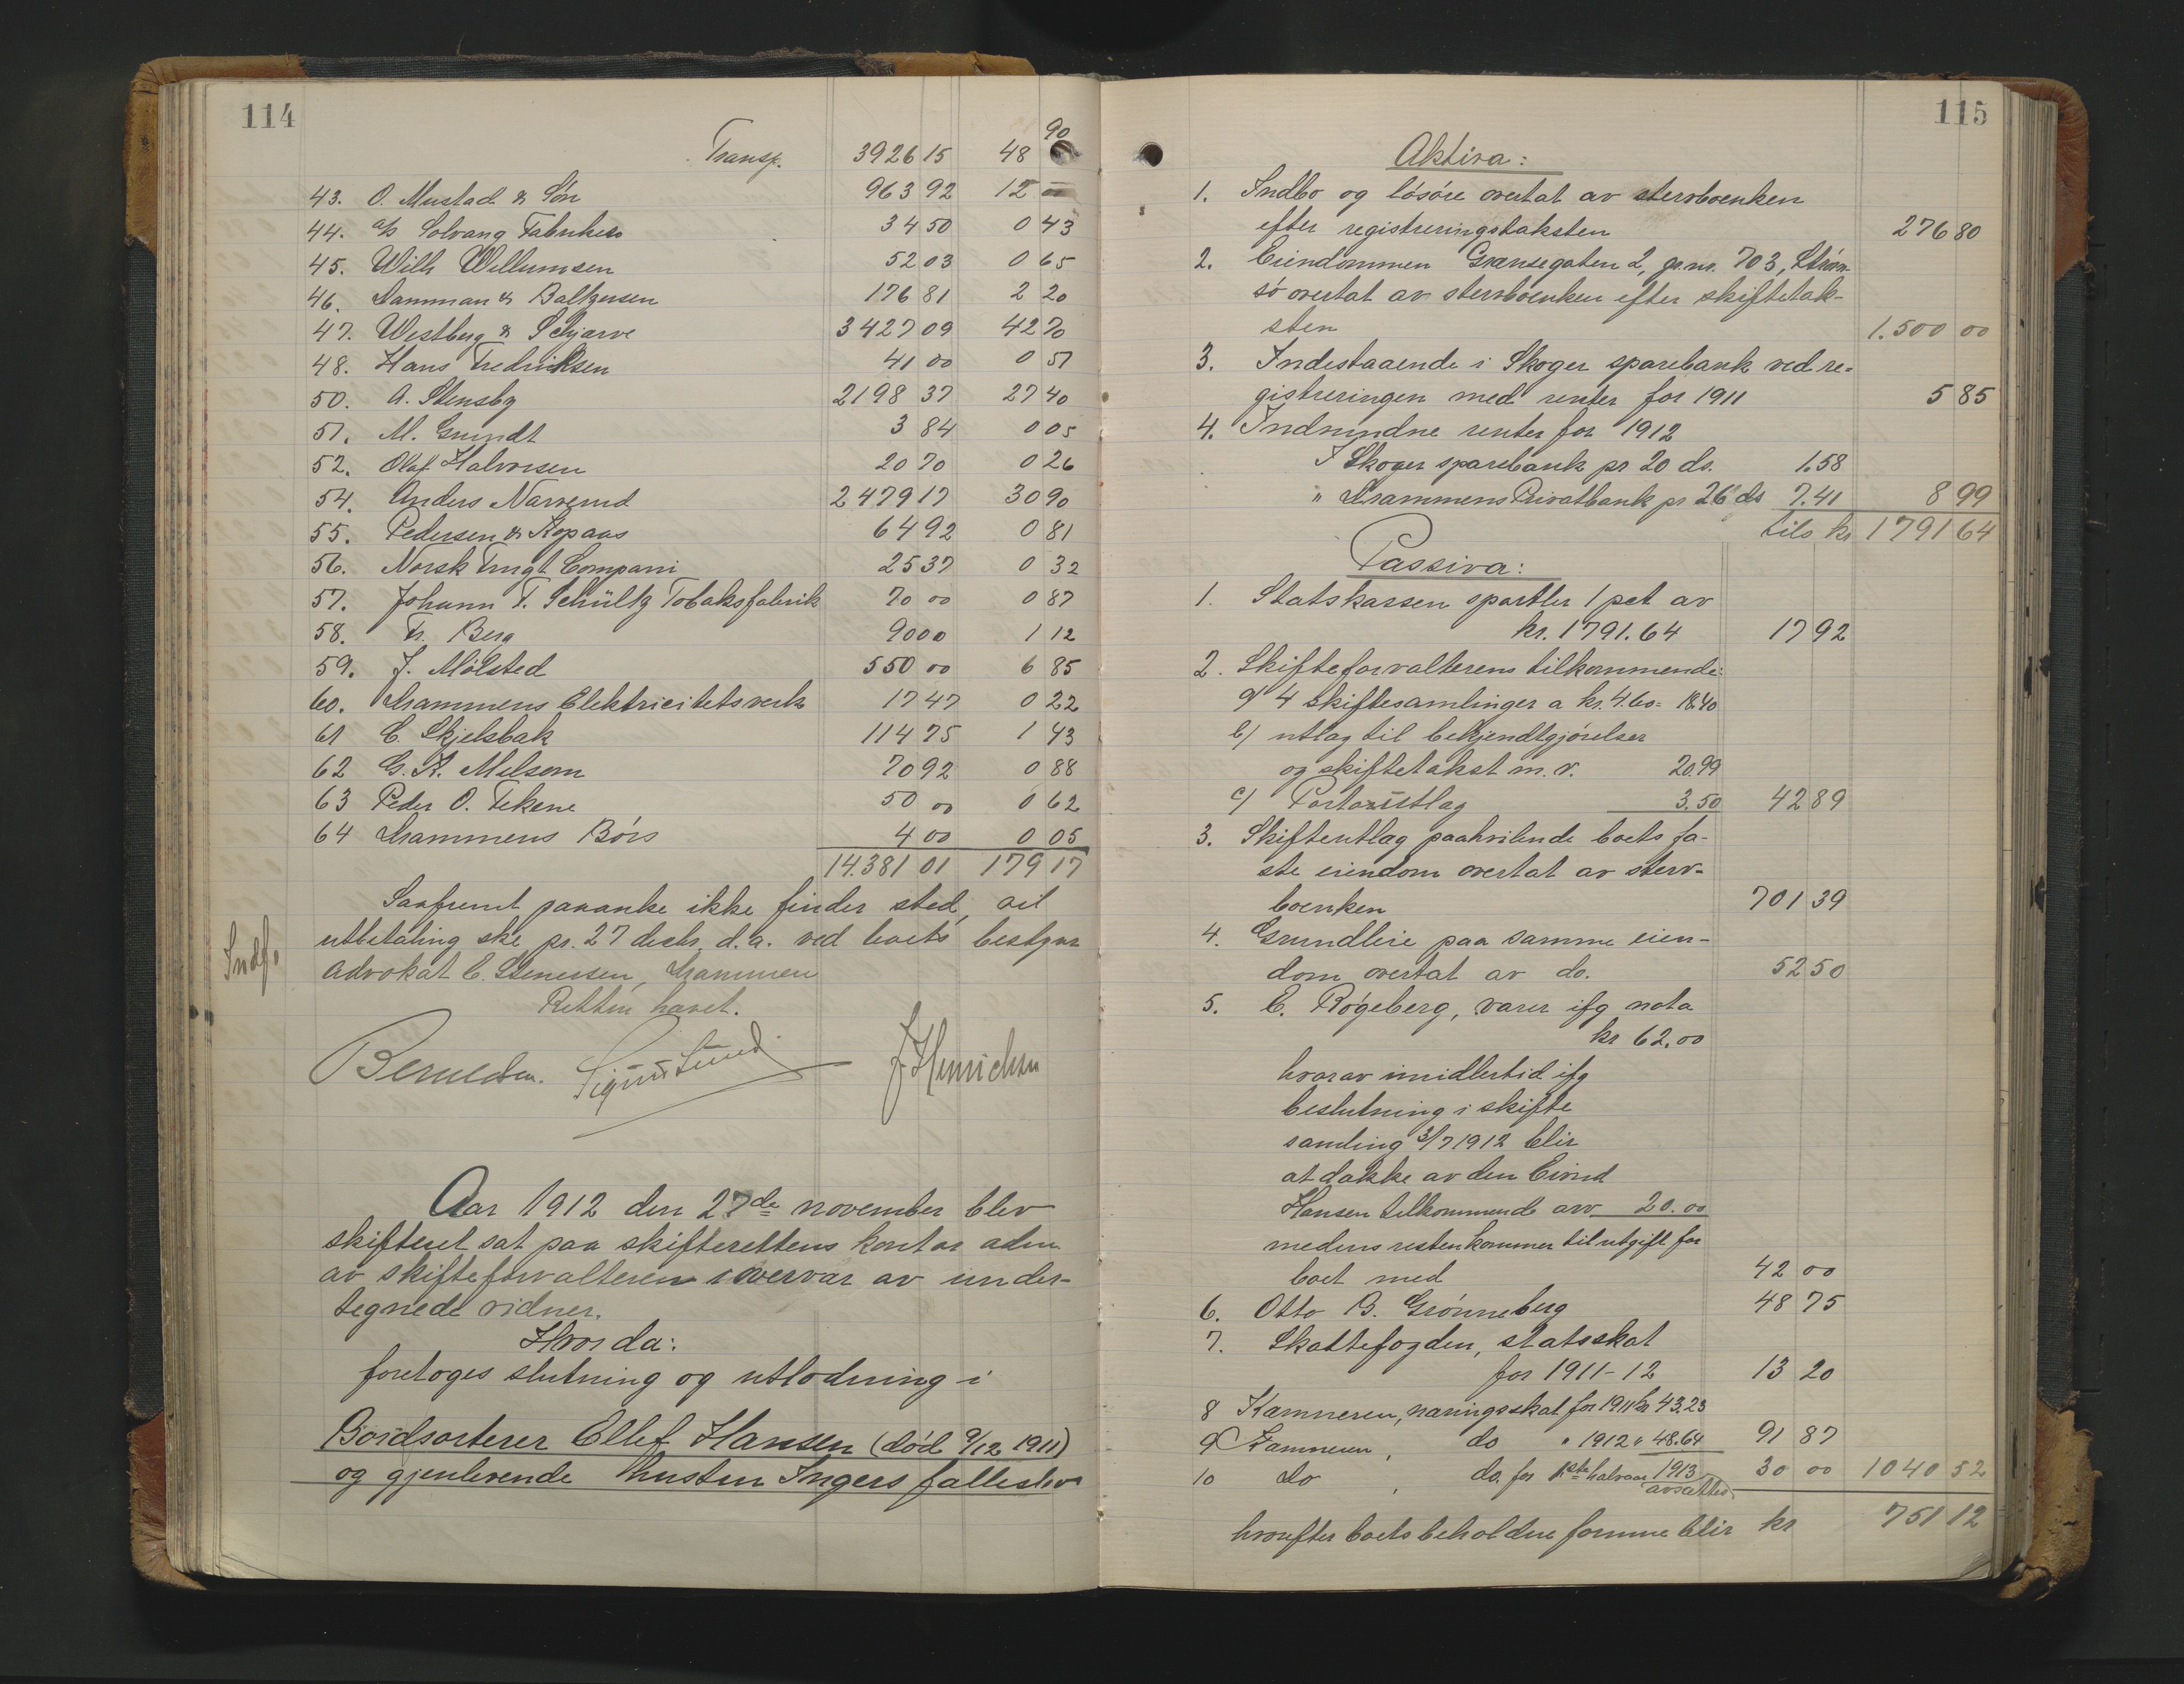 114
Transp. 3926 15 48 90
43. O. Mustad & Søn 963 92 12 00
44. a/s Solvang Fabrikker 34 50 0 43
45. Wilh Willumsen 52 03 0 65
46. Damman & Baltzersen 176 81 2 20
47. Westberg & Schjarve 3427 09 42 70
48. Hans Fredriksen 41 00 0 51
50. A. Stensby 2198 37 27 40
51. M. Grundt 3 84 0 05
52. Olaf Halvorsen 20 70 0 26
54. Anders Narverud 2479 17 30 90
55. Pedersen & Kopaas 64 92 0 81
56. Norsk Frugt Compani 25 37 0 32
57. Johann F. Schültz Tobaksfabrik 70 00 0 87
58. Fr. Berg 90 00 1 12
59. J. Mølsted 550 00 6 85
60. Drammens Elektricitetsverk 17 47 0 22
61 C. Skjelsbæk 114 75 1 43
62 G. A. Melsom 70 92 0 88
63 Peder O. Tekene 50 00 0 62
64 Drammens Børs 4 00 0 05
14.381 01 179 17
Saafremt paaanke ikke finder sted, vil
utbetaling ske pr. 27 decbr. d.a. ved boets bestyrer
Indf.
advokat C. Stenersen, Drammen
Retten hævet.
Sigurd Lund J Henrichsen
Aar 1912 den 27de november blev
skifteret sat paa skifterettens kontor adm
av skifteforvalteren i overvær av under-
tegnede vidner.
Hvor da:
foretoges slutning og utlodning i
Bordsorterer Ellef Hansen (død 9/12 1911)
og gjenlevende hustru Ingers fællesbo
115
Aktiva:
1. Indbo og løsøre overtat av stervboenken
efter registreringstaksten 276 80
2. Eiendommen Grænsegaten 2, gr.nr. 703, Strøm-
sø overtat av stervboenken efter skiftetak-
sten 1.500 00
3. Indestaaende i Skoger sparebank ved re-
gistreringen med renter for 1911 5 85
4. Indvundne renter for 1912
I Skoger sparebank pr 20 ds. 1.58
" Drammens Privatbank pr 26 ds 7.41 8 99
tils kr 1791 64
Passiva:
1. Statskassen sportler 1 pct av
kr. 1791.64 17 92
2. Skifteforvalterens tilkommende:
a/ 4 skiftesamlinger a kr. 4.60 = 18.40
b/ utlæg til bekjendtgjørelser
og skiftetakst m.v. 20.99
c/ Portoutlæg 3.50 42 89
3. Skifteutlæg paahvilende boets fa-
ste eiendom overtat av sterv-
boenken 701 39
4. Grundleie paa samme eien-
dom overtat av do. 52 50
5. C. Røgeberg, varer ifg nota
kr 62.00
hvorav imidlertid ifg
beslutning i skifte
samling 3/7 1912 blir
at dække av den Eivind
Hansen tilkommende arv 20.00
medens resten kommer til utgift for
boet med 42 00
6. Otto B. Grønneberg 48 75
7. Skattefogden, statsskat
for 1911-12 13 20
8 Kæmneren, næringsskat for 1911 kr 43.23
9 Kæmneren, do " 1912 " 48.64 91 87
10 do, do. for 1ste halvaar 1913
avsættes 30 00 1040 52
hvorefter boets beholdne formue blir kr 751 12